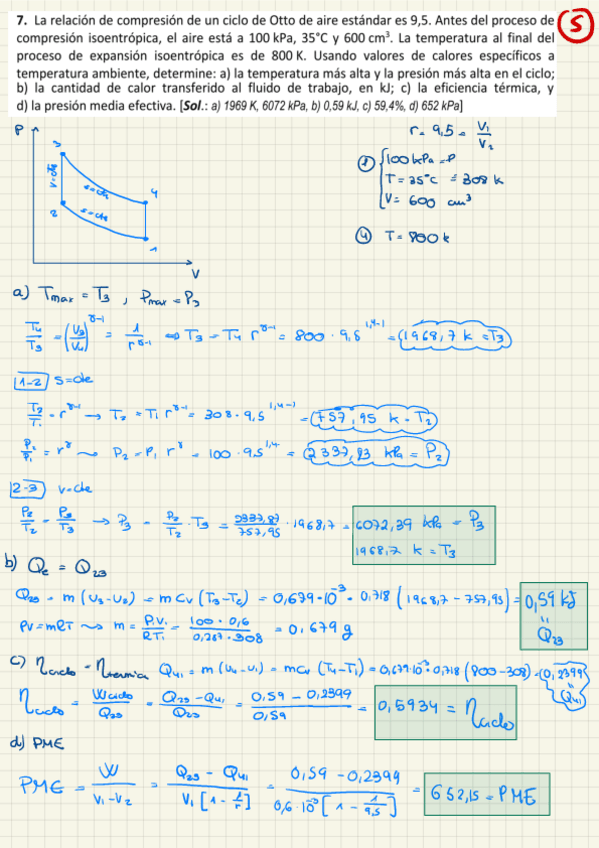 7. La relación de compresión de un ciclo de Otto de aire estándar es 9,5. Antes del proceso de
compresión isoentrópica, el aire está a 100 kPa, 35°C y 600 cm³. La temperatura al final del
proceso de expansión isoentrópica es de 800 K. Usando valores de calores específicos a
temperatura ambiente, determine: a) la temperatura más alta y la presión más alta en el ciclo;
b) la cantidad de calor transferido al fluido de trabajo, en kJ; c) la eficiencia térmica, y
d) la presión media efectiva. [Sol.: a) 1969 K, 6072 kPa, b) 0,59 kJ, c) 59,4%, d) 652 kPa]
S
P
r = 9,5 = V1/V2
① 100 kPa = P
T = 35°C = 308 K
V = 600 cm³
④ T = 800 K
3
4
2
1
V=cte
s=cte
s=cte
V
a) Tmax = T3 , Pmax = P3
T4/T3 = (V3/V4)^(γ-1) = 1/r^(γ-1) ⇔ T3 = T4 r^(γ-1) = 800 · 9,5^(1,4-1) = 1968,7 K = T3
1-2 s=cte
T2/T1 = r^(γ-1) → T2 = T1 r^(γ-1) = 308 · 9,5^(1,4-1) = 757,95 K = T2
P2/P1 = r^γ → P2 = P1 r^γ = 100 · 9,5^(1,4) = 2337,83 kPa = P2
2-3 V=cte
P2/T2 = P3/T3 → P3 = P2/T2 · T3 = 2337,83/757,95 · 1968,7 = 6072,39 kPa = P3
1968,7 K = T3
b) Qe = Q23
Q23 = m (U3-U2) = m Cv (T3-T2) = 0,679·10^-3 · 0,718 (1968,7 - 757,95) = 0,59 kJ = Q23
PV = mRT → m = P1V1/RT1 = 100 · 0,6/0,287 · 308 = 0,679 g
c) ηciclo = ηtermica Q41 = m (U4-U1) = mCv (T4-T1) = 0,679·10^-3 · 0,718 (800-308) = 0,2399 = Q41
ηciclo = Wciclo/Q23 = Q23 - Q41/Q23 = 0,59 - 0,2399/0,59 = 0,5934 = ηciclo
d) PME
PME = W/V1-V2 = Q23 - Q41/V1[1 - 1/r] = 0,59 - 0,2399/0,6·10^-3[1 - 1/9,5] = 652,15 = PME